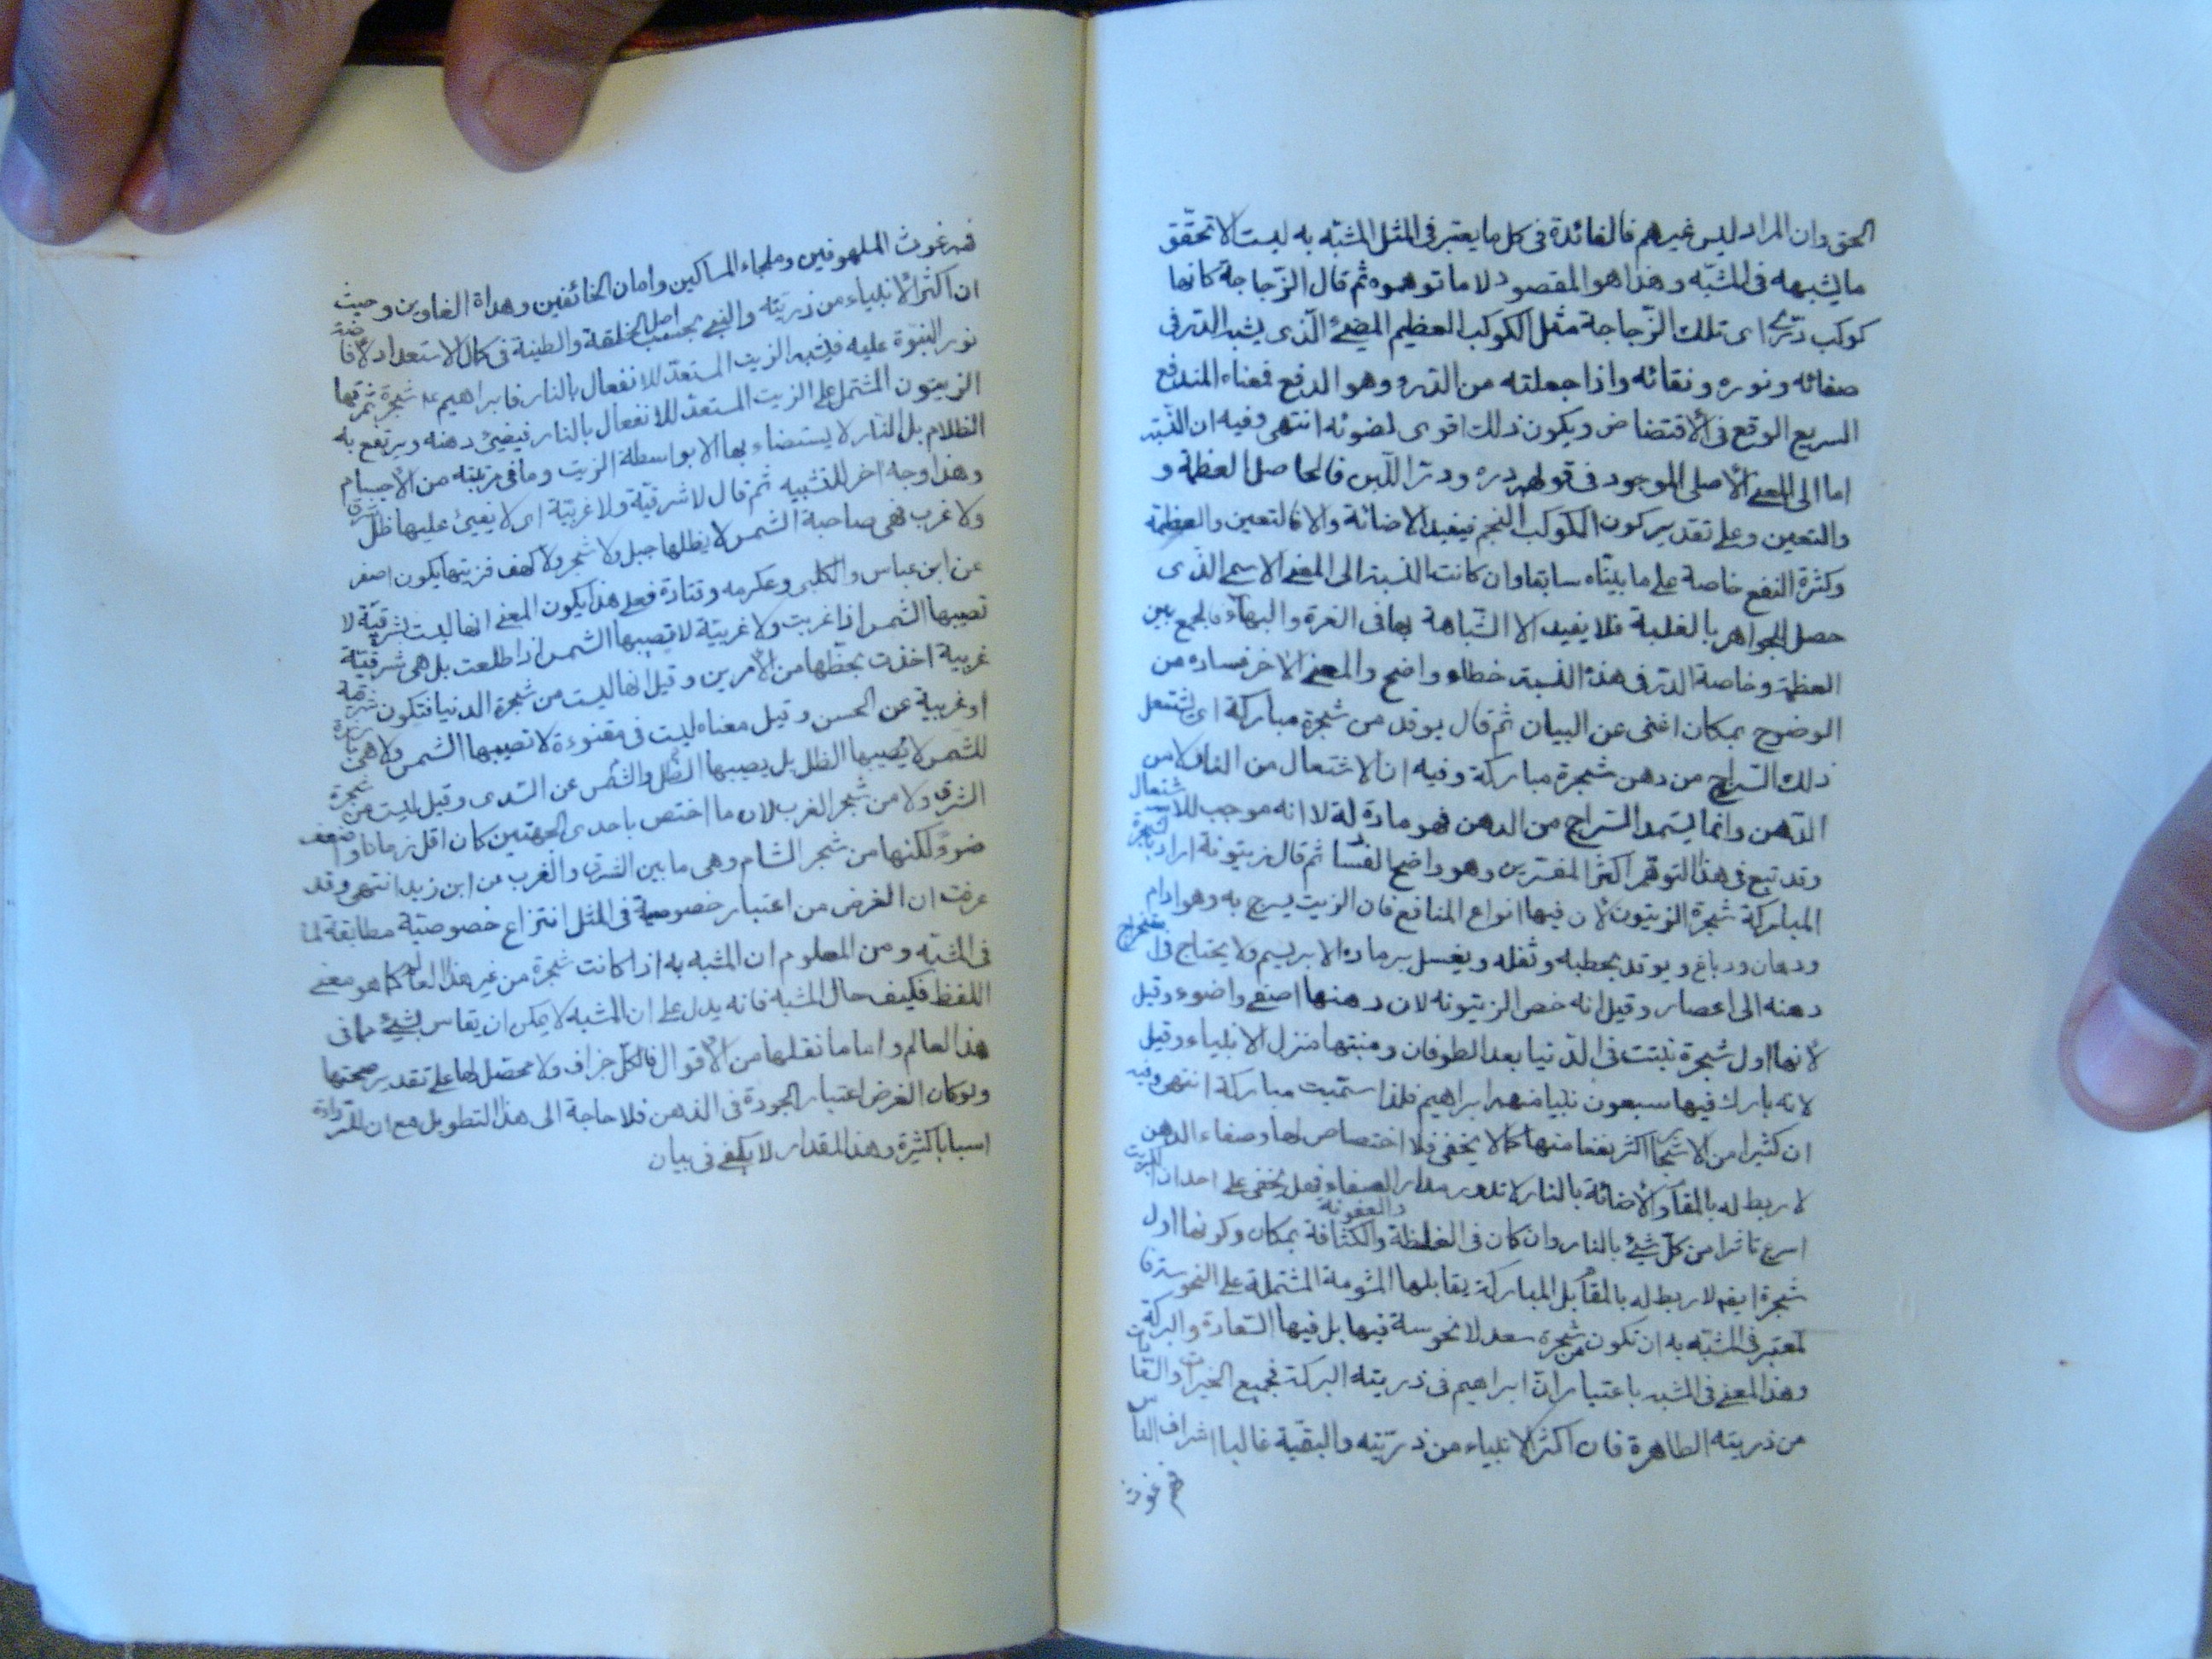 الحق وان المراد ليس غيرهم فالفائدة فى كل ما يعتبر فى المثل المشبّه به ليست الا تحقّق
ما يشبهه فى المشبّه وهذا هو المقصود لا ما توهموه ثم قال الزّجاجة كانها
كوكب درّى اى تلك الزّجاجة مثل الكوكب العظيم المضئ الّذى يشبه الدّر فى
صفائه ونوره ونقائه واذا جعلته من الدّرء وهو الدفع فمعناه المندفع
السريع الوقع فى الأنقضاض ويكون ذلك اقوى لضوئه انتهى وفيه ان النّسبة
اما الى المعنى الأصلى الموجود فى قولهم دره ودرّ اللّبن فالحاصل العظمة و
والتعين وعلى تقدير كون الكوكب النجم فيفيد الاضائة والا فالتعين والعظمة
وكثرة النفع خاصة على ما بيّناه سابقا وان كانت النسبة الى المعنى الاسمى الذى
حصل للجواهر بالغلبة فلا يفيد الا الشّباهة بها فى الغرة والبهاء فالجمع بين
العظمة وخاصة الدّر فى هذه النسبة خطاء واضح والمعنى الاخر فساده من
الوضوح بمكان اغنى عن البيان ثم قال يوقد من شجرة مباركة اى يشتعل
ذلك السّراج من دهن شجرة مباركة وفيه ان الاشتعال من النار لا من
الدّهن وانما يستمد السّراج من الدهن فهو مادة له لا انه موجب للاشتعال
وقد تبع فى هذا التوهّم اكثر المفسّرين وهو واضح الفسا ثم قال زيتونة اراد بالشجرة
المباركة شجرة الزيتون لأن فيها انواع المنافع فان الزيت يسرج به وهو ادام
ودهان ودباغ ويوقد بحطبه وثفله ويغسل برماده الابريسم ولا يحتاج فى استخراج
دهنه الى اعصار وقيل انه خص الزيتونة لان دهنها اصفى واضوء وقيل
لأنها اول شجرة نبتت فى الدّنيا بعد الطوفان ومنبتها منزل الانبياء وقيل
لانه بارك فيها سبعون نبيا منهم ابراهيم فلذا سمّيت مباركة انتهى وفيه
ان كثيرا من الاشجار اكثر نفعا منها كما لا يخفى فلا اختصاص لها وصفاء الدهن
لا ربط له بالمقام والأضائة بالنار لا تدور مدار الصفاء فهل يخفى على احد ان الكبريت
اسرع تاثرا من كلّ شئ بالنار وان كان فى الغلظة والكثافة والعفونة بمكان وكونها اول
شجرة ايضا لا ربط له بالمقام بل المباركة يقابلها المشومة المشتملة على النحوسة فا
لمعتبر فى المشبّه به ان تكون من شجرة سعد لا نحوسة فيها بل فيها السّعادة والبركة
وهذا المعنى فى المشبه باعتبار انّ ابراهيم فى ذريته البركة فجميع الخيرات والسّعادات
من ذريته الطاهرة فان اكثر الانبياء من ذرّيّته والبقيّة غالبا اشراف الناس
فهم غوث
فهم غوث الملهوفين وملجاء المساكين وامان الخائفين وهداة الغاوين وحيث
ان اكثر الأنبياء من ذريّته والنبى بحسب اصل الخلقة والطينة فى كمال الاستعداد لافاضة
نور النبوّة عليه فيشبه الزيت المستعدّ للانفعال بالنار فابراهيم ع شجرة ثمرتها
الزيتون المشتمل على الزيت المستعدّ للانفعال بالنار فيضئ دهنه ويرتفع به
الظلام بل النار لا يستضاء بها الا بواسطة الزيت وما فى مرتبته من الاجسام
وهذا وجه اخر للتشبيه ثم قال لا شرقيّة ولا غربيّة اى لا يفيئ عليها ظلّ شرق
ولا غرب فهى ضاحية الشمس لا يظلها جبل ولا شجر ولا كهف فزيتها يكون اصفر
عن ابن عباس والكلبى وعكرمه وقتادة فعلى هذا يكون المعنى انها ليست بشرقيّة لا
تصيبها الشمس اذا غربت ولا غربيّة لا تصيبها الشمس اذا طلعت بل هى شرقيّة
غربية اخذت بحظّها من الأمرين وقيل انها ليست من شجرة الدنيا فتكون شرقية
او غربية عن الحسن وقيل معناه ليست فى مقنوءة لا تصيبها الشمس ولا هى بارزة
للشّمس لا يصيبها الظل بل يصيبها الظل والشمس عن السّدى وقيل ليست من شجرة
الشرق ولا من شجر الغرب لان ما اختص باحدى الجهتين كان اقل زمانا واضعف
ضوءً لكنها من شجر الشام وهى ما بين الشرق والغرب عن ابن زيد انتهى وقد
عرفت ان الغرض من اعتبار خصوصية فى المثل انتزاع خصوصيّة مطابقة لها
فى المشبّه ومن المعلوم ان المشبه به اذا كانت شجرة من غير هذا العالم كما هو معنى
اللفظ فكيف حال المشبه فانه يدل على ان المشبه لا يمكن ان يقاس بشئ مما فى
هذا العالم واما ما نقلها من الأقوال فالكلّ جزاف ولا محصّل لها على تقدير صحتها
ولو كان الغرض اعتبار الجودة فى الدّهن فلا حاجة الى هذا التطويل مع ان للرداءة
اسبابا كثيرة وهذا المقدار لا يكفى فى بيان